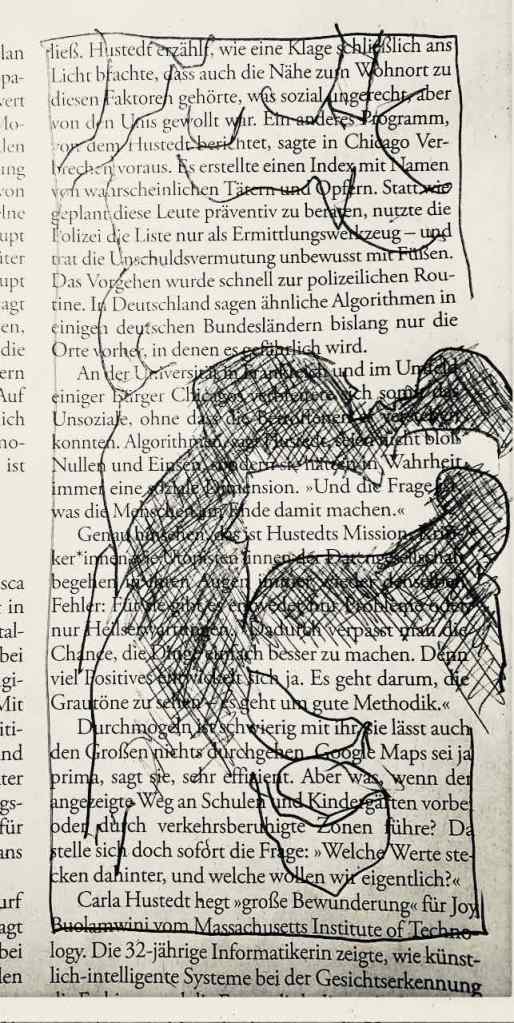 lan
pa-
vert
Mo-
len
ung
von
elne
upt
iter
upt
agt
en,
die
ern
Auf
lich
no-
ist
sca
in
tal-
bei
gi-
Mit
iti-
und
ater
ngs-
für
ans
urf
agt
bei
len
ließ. Hustedt erzählt, wie eine Klage schließlich ans
Licht brachte, dass auch die Nähe zum Wohnort zu
diesen Faktoren gehörte, was sozial ungerecht, aber
von den Unis gewollt war. Ein anderes Programm,
von dem Hustedt berichtet, sagte in Chicago Ver-
brechen voraus. Es erstellte einen Index mit Namen
von wahrscheinlichen Tätern und Opfern. Statt wie
geplant diese Leute präventiv zu beraten, nutzte die
Polizei die Liste nur als Ermittlungswerkzeug – und
trat die Unschuldsvermutung unbewusst mit Füßen.
Das Vorgehen wurde schnell zur polizeilichen Rou-
tine. In Deutschland sagen ähnliche Algorithmen in
einigen deutschen Bundesländern bislang nur die
Orte vorher, in denen es gefährlich wird.
An der Universität in Frankreich und im Umfeld
einiger Bürger Chicagos verbreitete sich somit das
Unsoziale, ohne dass die Betroffenen verstehen
konnten. Algorithmen, sagt Hustedt, seien nicht bloß
Nullen und Einsen, sondern sie hätten in Wahrheit
immer eine soziale Dimension. »Und die Frage ist,
was die Menschen am Ende damit machen.«
Genau hinsehen, das ist Hustedts Mission. Kriti-
ker*innen wie Utopisten*innen der Datengesellschaft
begehen in ihren Augen immer wieder denselben
Fehler: Für sie gibt es entweder nur Probleme oder
nur Heilserwartungen. »Dadurch verpasst man die
Chance, die Dinge einfach besser zu machen. Denn
viel Positives entwickelt sich ja. Es geht darum, die
Grautöne zu sehen – es geht um gute Methodik.«
Durchmogeln ist schwierig mit ihr, sie lässt auch
den Großen nichts durchgehen. Google Maps sei ja
prima, sagt sie, sehr effizient. Aber was, wenn der
angezeigte Weg an Schulen und Kindergärten vorbei
oder durch verkehrsberuhigte Zonen führe? Da
stelle sich doch sofort die Frage: »Welche Werte ste-
cken dahinter, und welche wollen wir eigentlich?«
Carla Hustedt hegt »große Bewunderung« für Joy
Buolamwini vom Massachusetts Institute of Techno-
logy. Die 32-jährige Informatikerin zeigte, wie künst-
lich-intelligente Systeme bei der Gesichtserkennung